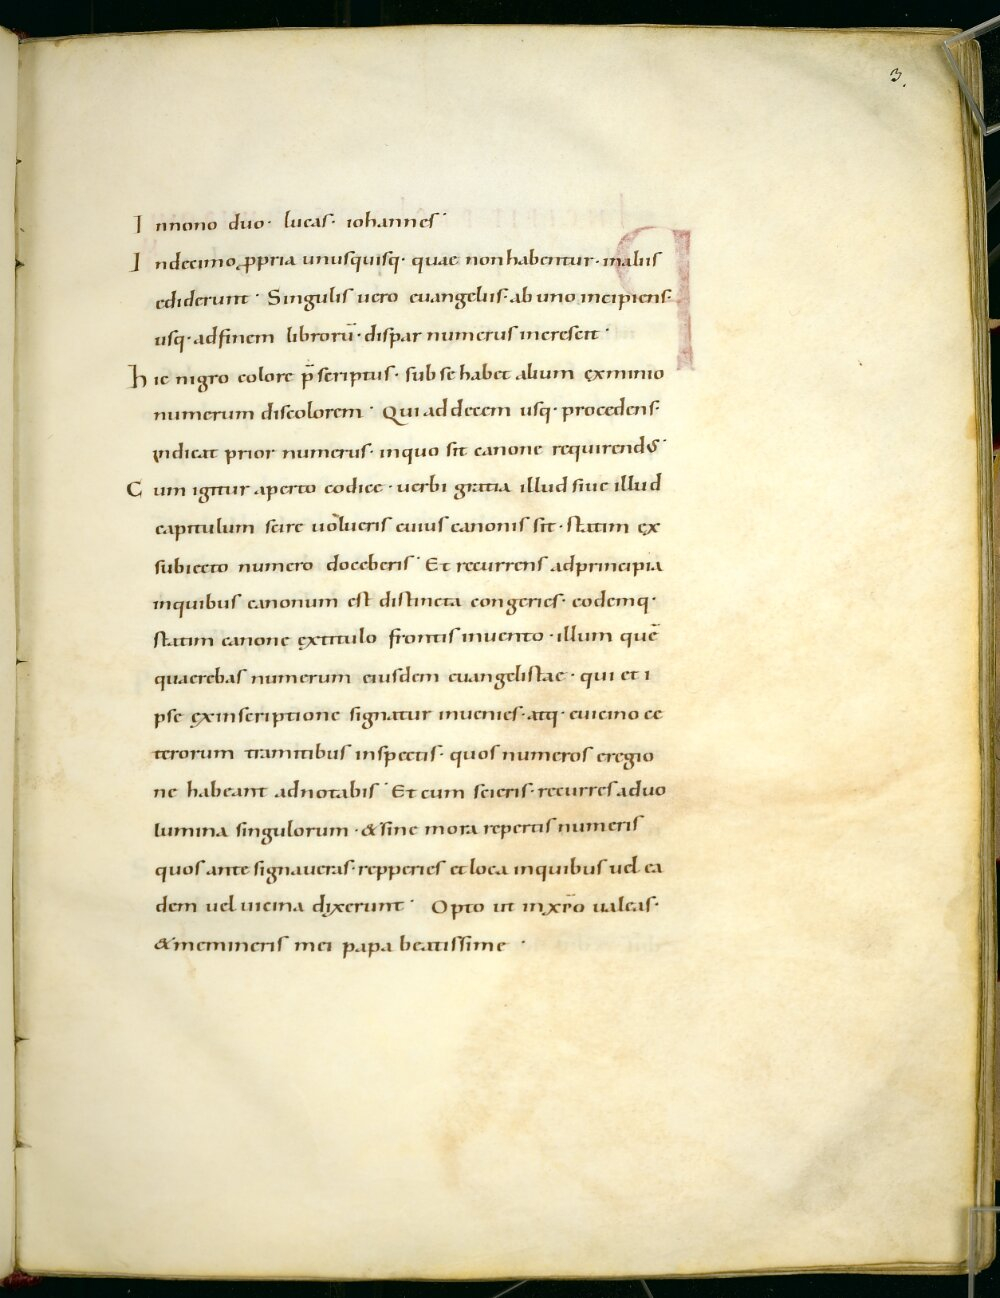 3.
Innono duo· lucas· iohannes·
Indecimo ꝓpria unusquisq· quae nonhabentur· inaliis
ediderunt· Singulis uero euangeliis· ab uno incipiens·
usq· adfinem librorū· dispar numerus increscit·
hic nigro colore p̄scriptus· sub se habet alium exminio
numerum discolorem· Qui ad decem usq· procedens·
indicat prior numerus· inquo sit canone requirend&·
Cum igitur aperto codice· uerbi gratia illud siue illud
capitulum scire uolueris cuius canonis sit· statim ex
subiecto numero doceberis· Et recurrens adprincipia
inquibus canonum est distincta congeries· eodemq·
statim canone extitulo frontis inuento· illum quē
quaerebas numerum eiusdem euangelistae· qui et i
pse exinscriptione signatur inuenies· atq· euicino ce
terorum tramitibus inspectis· quos numeros eregio
ne habeant adnotabis· Et cum scieris· recurres aduo
lumina singulorum· & sine mora repertis numeris
quos ante signaueras· repperies et loca inquibus uel ea
dem uel uicina dixerunt· Opto ut inxp̄o ualeas·
& memineris mei papa beatissime·